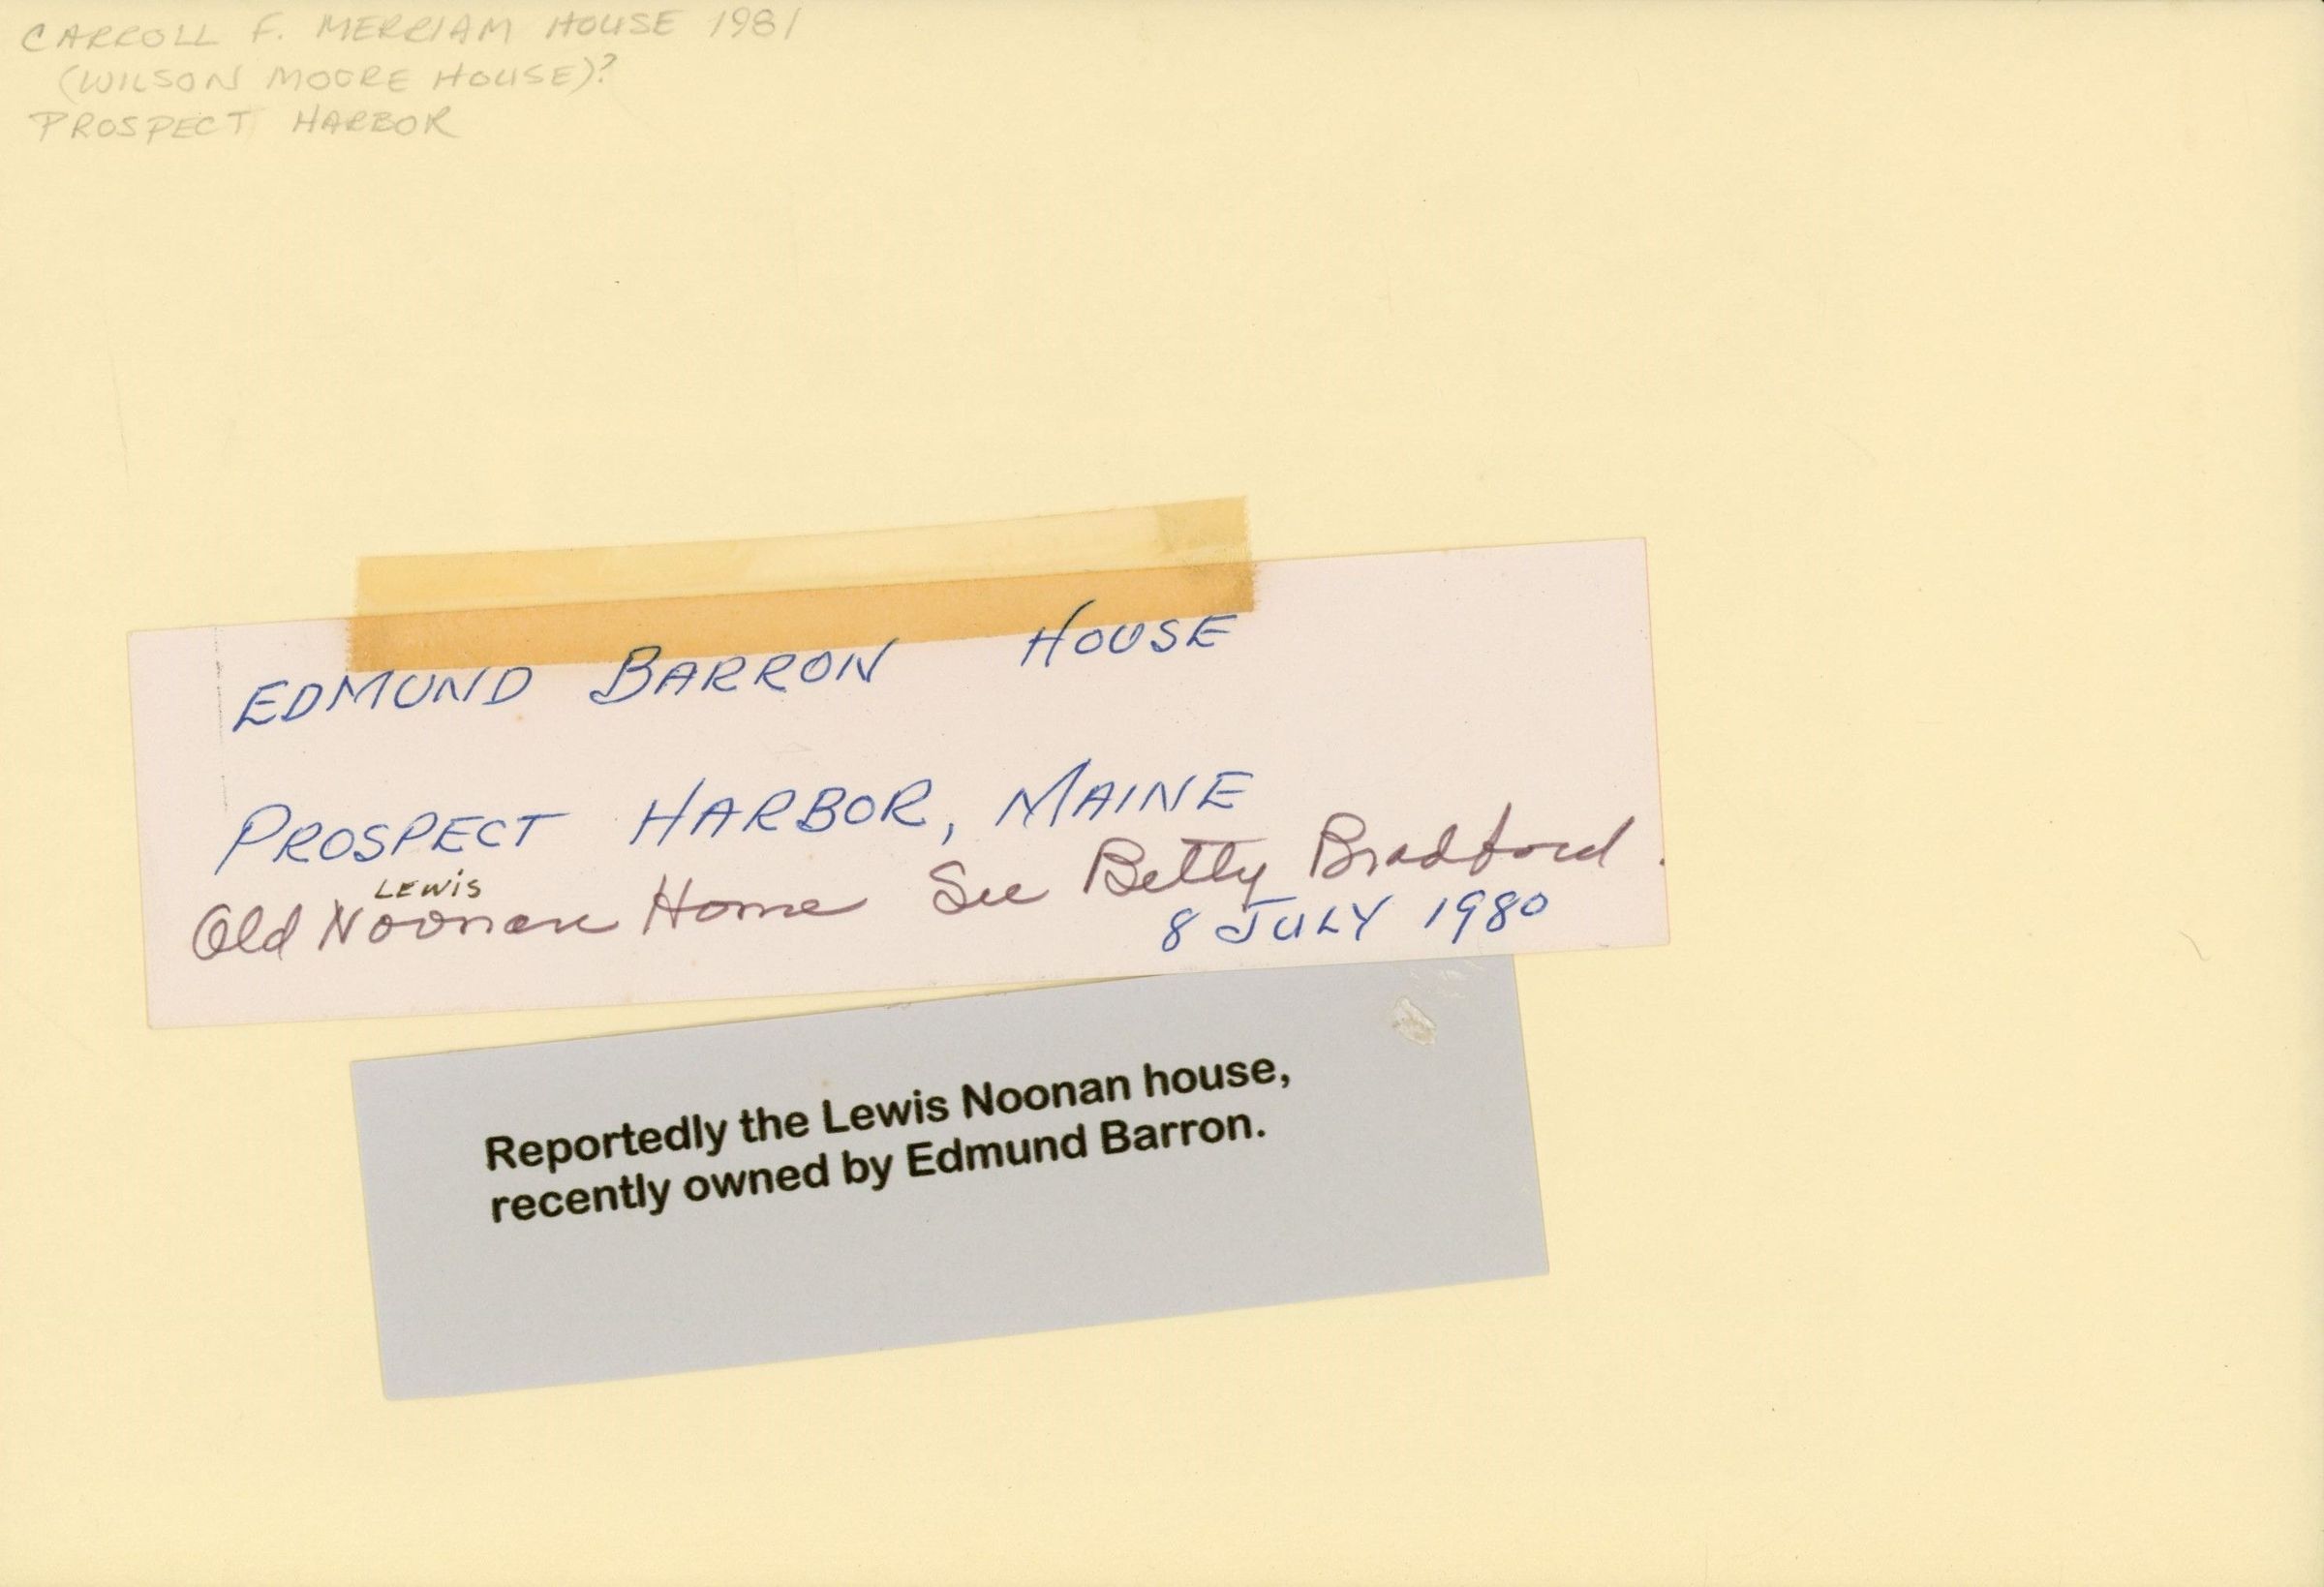 CARROLL F. MERRIAM HOUSE 1981
(WILSON MOORE HOUSE)?
PROSPECT HARBOR
EDMUND BARRON HOUSE
PROSPECT HARBOR, MAINE
LEWIS
Old Noonan Home See Betty Bradford.
8 JULY 1980
Reportedly the Lewis Noonan house,
recently owned by Edmund Barron.